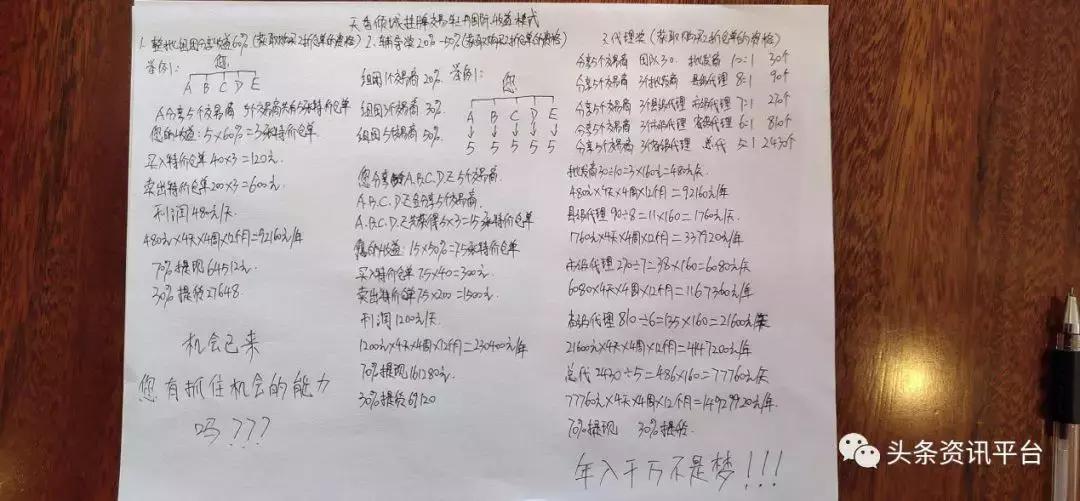 天香倾城挂牌交易
收益模式
1. 整批组团分享收益60%(获取购买2折仓单的资格)
举例1:
您
A B C D E
A分享5个交易商 5个交易商共有5张特价仓单
您的收益:5×60%=3张特价仓单
买入特价仓单40×3=120元
卖出特价仓单200×3=600元
利润480元/天
480元×4天×4周×12个月=92160元/年
70%提现64512元
30%提货27648
机会已来
您有抓住机会的能力
吗???
2. 辅导奖20%-50%(获取购买2折仓单的资格)
组团1个交易商 20%
组团3个交易商 30%
组团5个交易商 50%
举例1:
您
A B C D E
5 5 5 5 5
您分享A.B.C.D.E5个交易商
A.B.C.D.E各分享5个交易商
A.B.C.D.E共获得5×3=15张特价仓单
您的收益:15×50%=7.5张特价仓单
买入特价仓单7.5×40=300元
卖出特价仓单7.5×200=1500元
利润1200元/天
1200元×4天×4周×12个月=230400元/年
70%提现161280元
30%提货69120
3. 代理奖(获取购买2折仓单的资格)
分享5个交易商 团队30 批发商 10=1 30个
分享5个交易商 3个批发商 县级代理 8=1 90个
分享5个交易商 3个县级代理 市级代理 7=1 270个
分享5个交易商 3个市级代理 省级代理 6=1 810个
分享5个交易商 3个省级代理 总代 5=1 2430个
批发商30÷10=3×160元=480元/天
480元×4天×4周×12个月=92160元/年
县级代理 90÷8=11×160=1760元/天
1760元×4天×4周×12个月=337920元/年
市级代理270÷7=38×160=6080元/天
6080×4天×4周×12个月=1167360元/年
省级代理 810÷6=135×160=21600元/天
21600元×4天×4周×12个月=4147200元/年
总代 2430÷5=486×160=77760元/天
77760元×4天×4周×12个月=14929920元/年
70%提现 30%提货
年入千万不是梦!!!
头条资讯平台